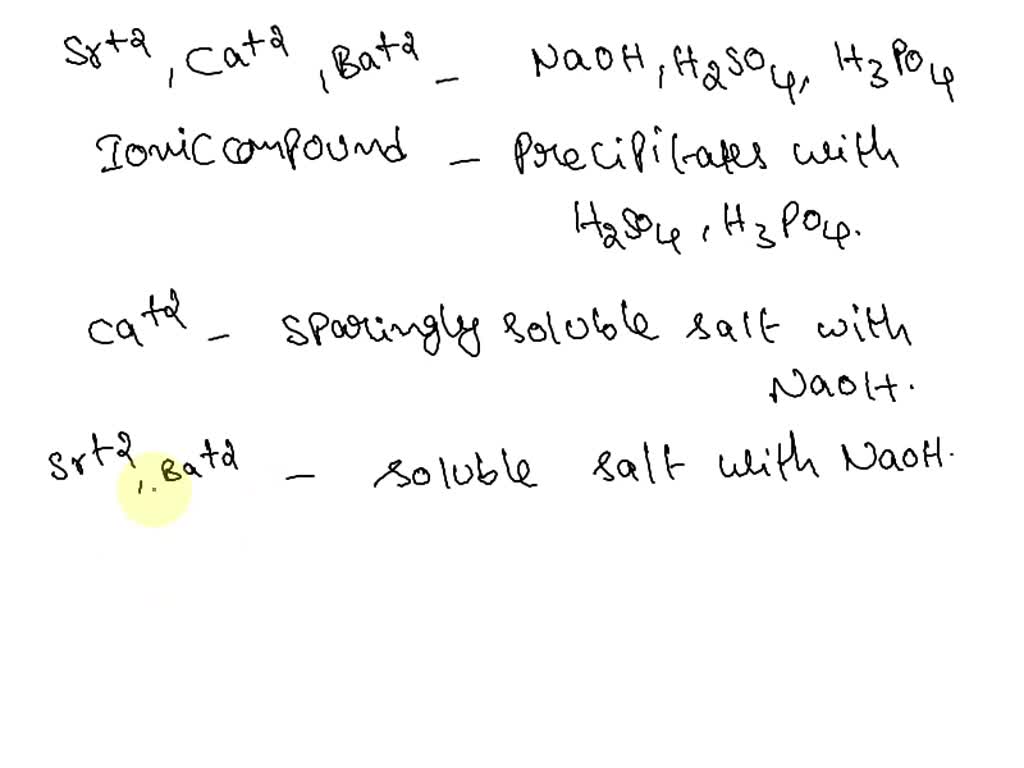 Sr+2, Ca+2, Ba+2 – NaOH, H2SO4, H3PO4
Ionic compound – Precipitates with
H2SO4, H3PO4.
Ca+2 – sparingly soluble salt with
NaOH.
Sr+2, Ba+2 – soluble salt with NaOH.